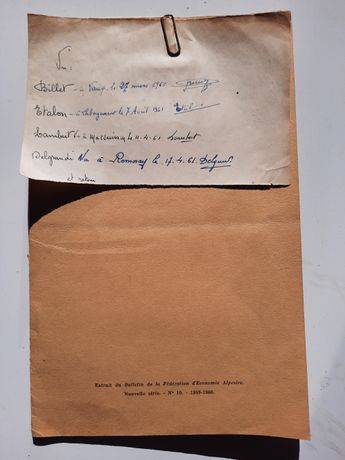 Vu :
Billet - à Vaux le 27 mars 1961
Etalon - à le 7 Août 1961
Lambert - à le 11-4-61 Lambert
Delgrandi Vu à Romnay le 17.4.61
et retour
Extrait du Bulletin de la Fédération d'Economie Alpestre.
Nouvelle série. - N° 10. - 1959-1960.